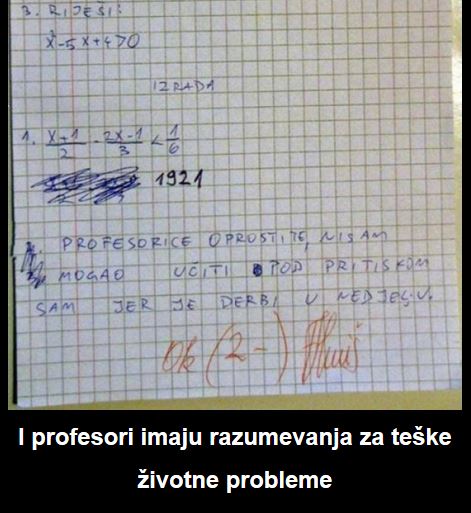 3. RIJEŠI:
x²-5x+4>0
IZRADA
1. x+1/2 - 2x-1/3 < 1/6
1921
PROFESORICE OPROSTITE, NISAM
MOGAO UČITI POD PRITISKOM
SAM JER JE DERBI U NEDJELJU.
Ok (2-)
I profesori imaju razumevanja za teške
životne probleme